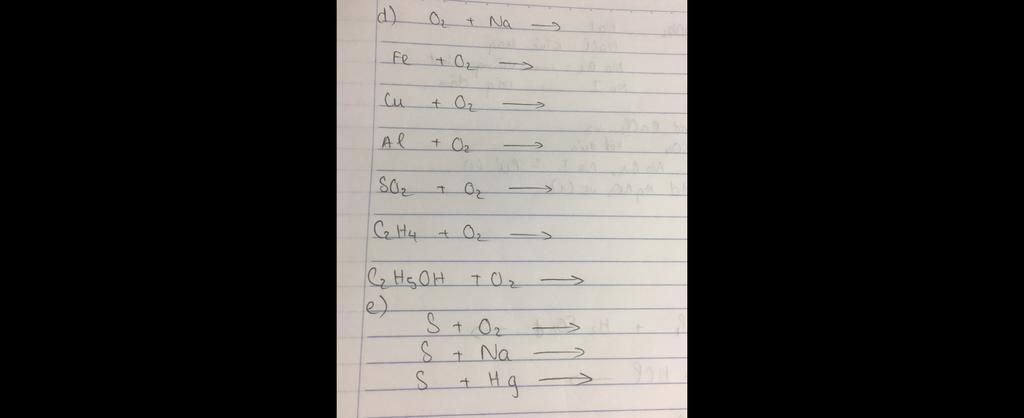 d) O₂ + Na →
Fe + O₂ →
Cu + O₂ →
Al + O₂ →
SO₂ + O₂ →
C₂H₄ + O₂ →
C₂H₅OH + O₂ →
e)
S + O₂ →
S + Na →
S + Hg →